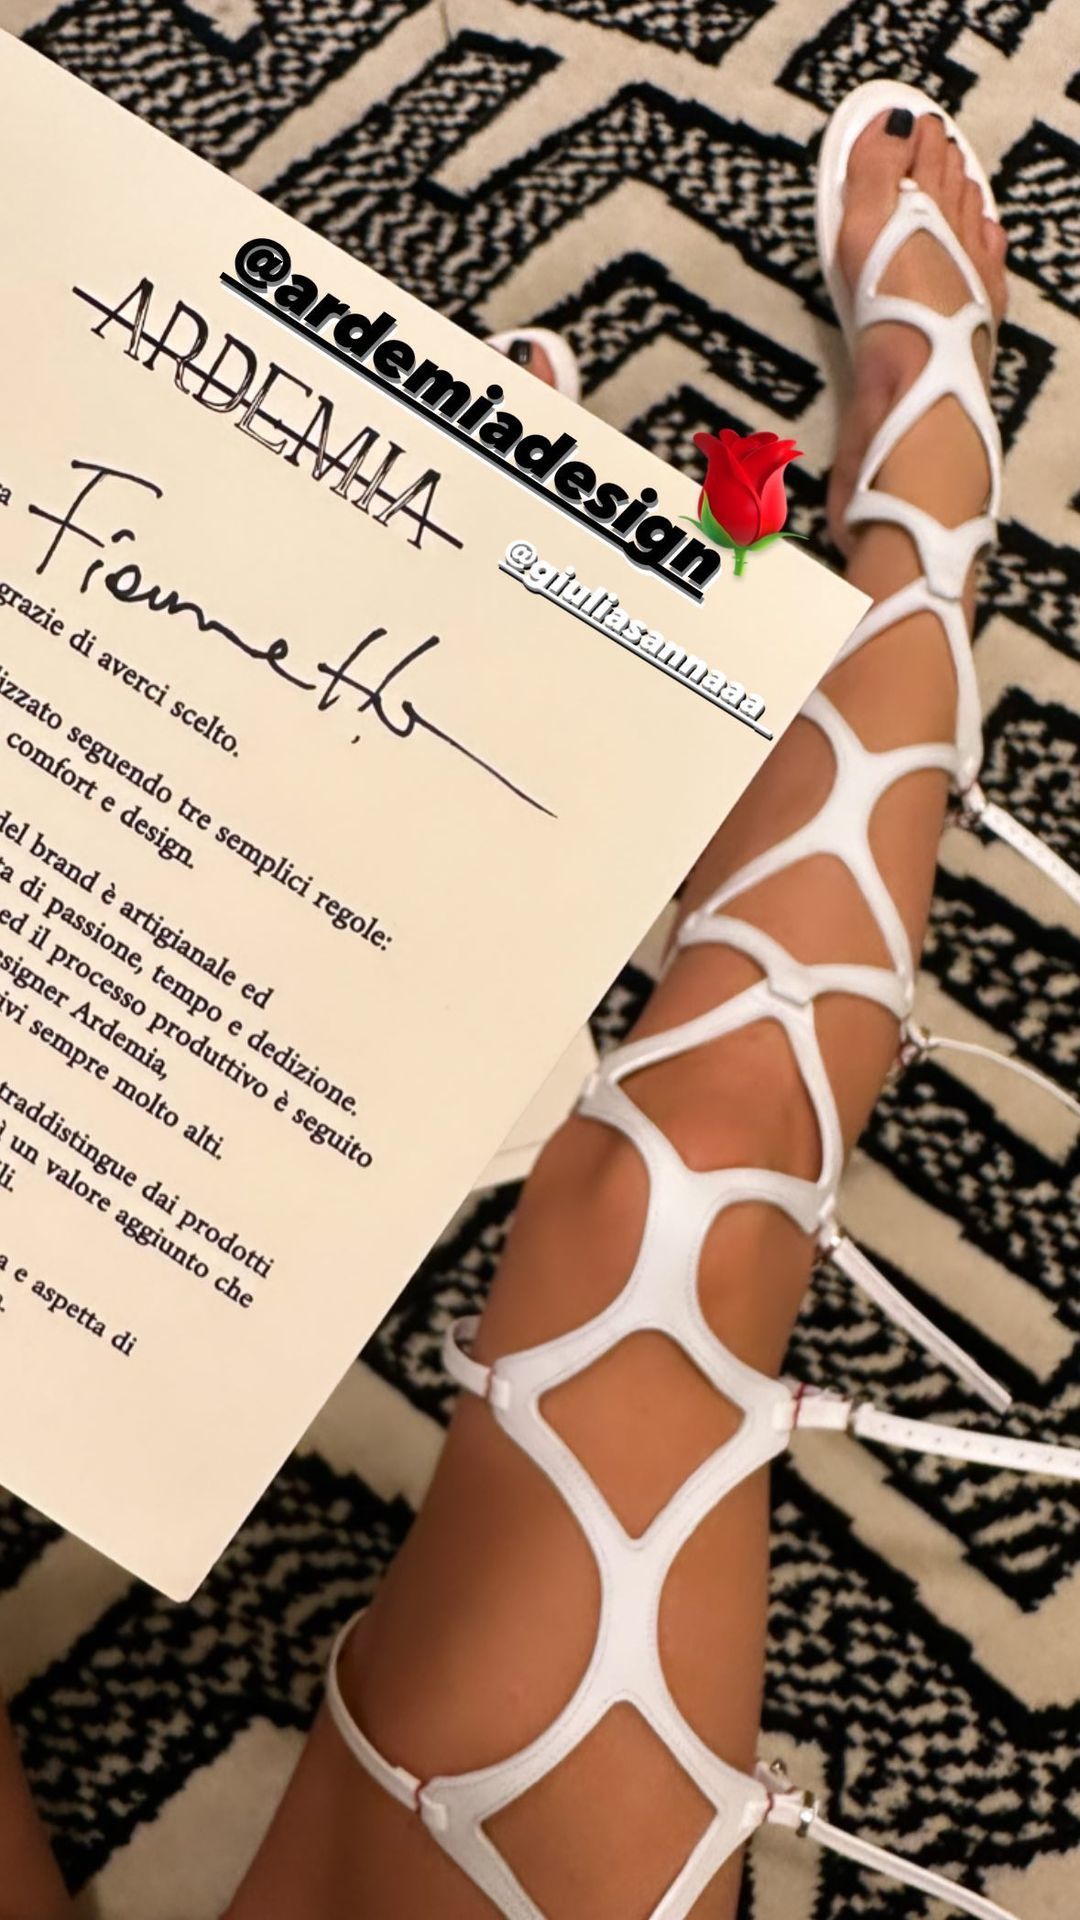 @ardemiadesign
ARDEMIA
@giuliasannaaa
Fiammetta,
grazie di averci scelto.
seguendo tre semplici regole:
comfort e design.
del brand è artigianale ed
di passione, tempo e dedizione.
ed il processo produttivo è seguito
Ardemia,
sempre molto alti.
dai prodotti
un valore aggiunto che
e aspetta di